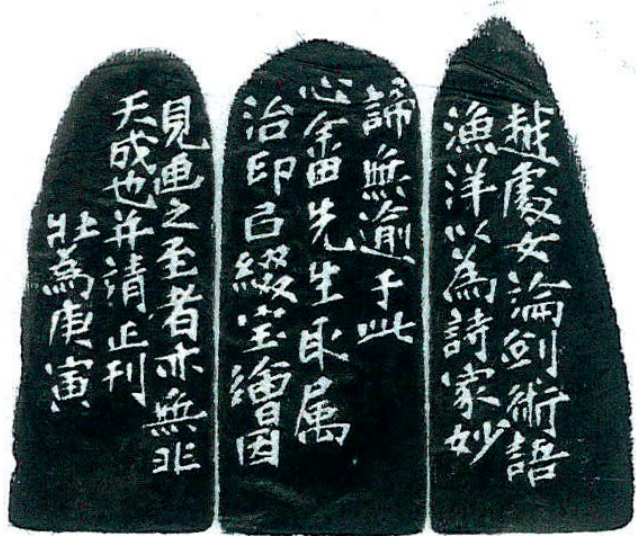 越處女論劍術語
漁洋以為詩家妙
諦無逾于此
心畬先生取属
治印㠯綴宝繪因
見画之至者亦無非
天成也并請正刊
壯為庚寅